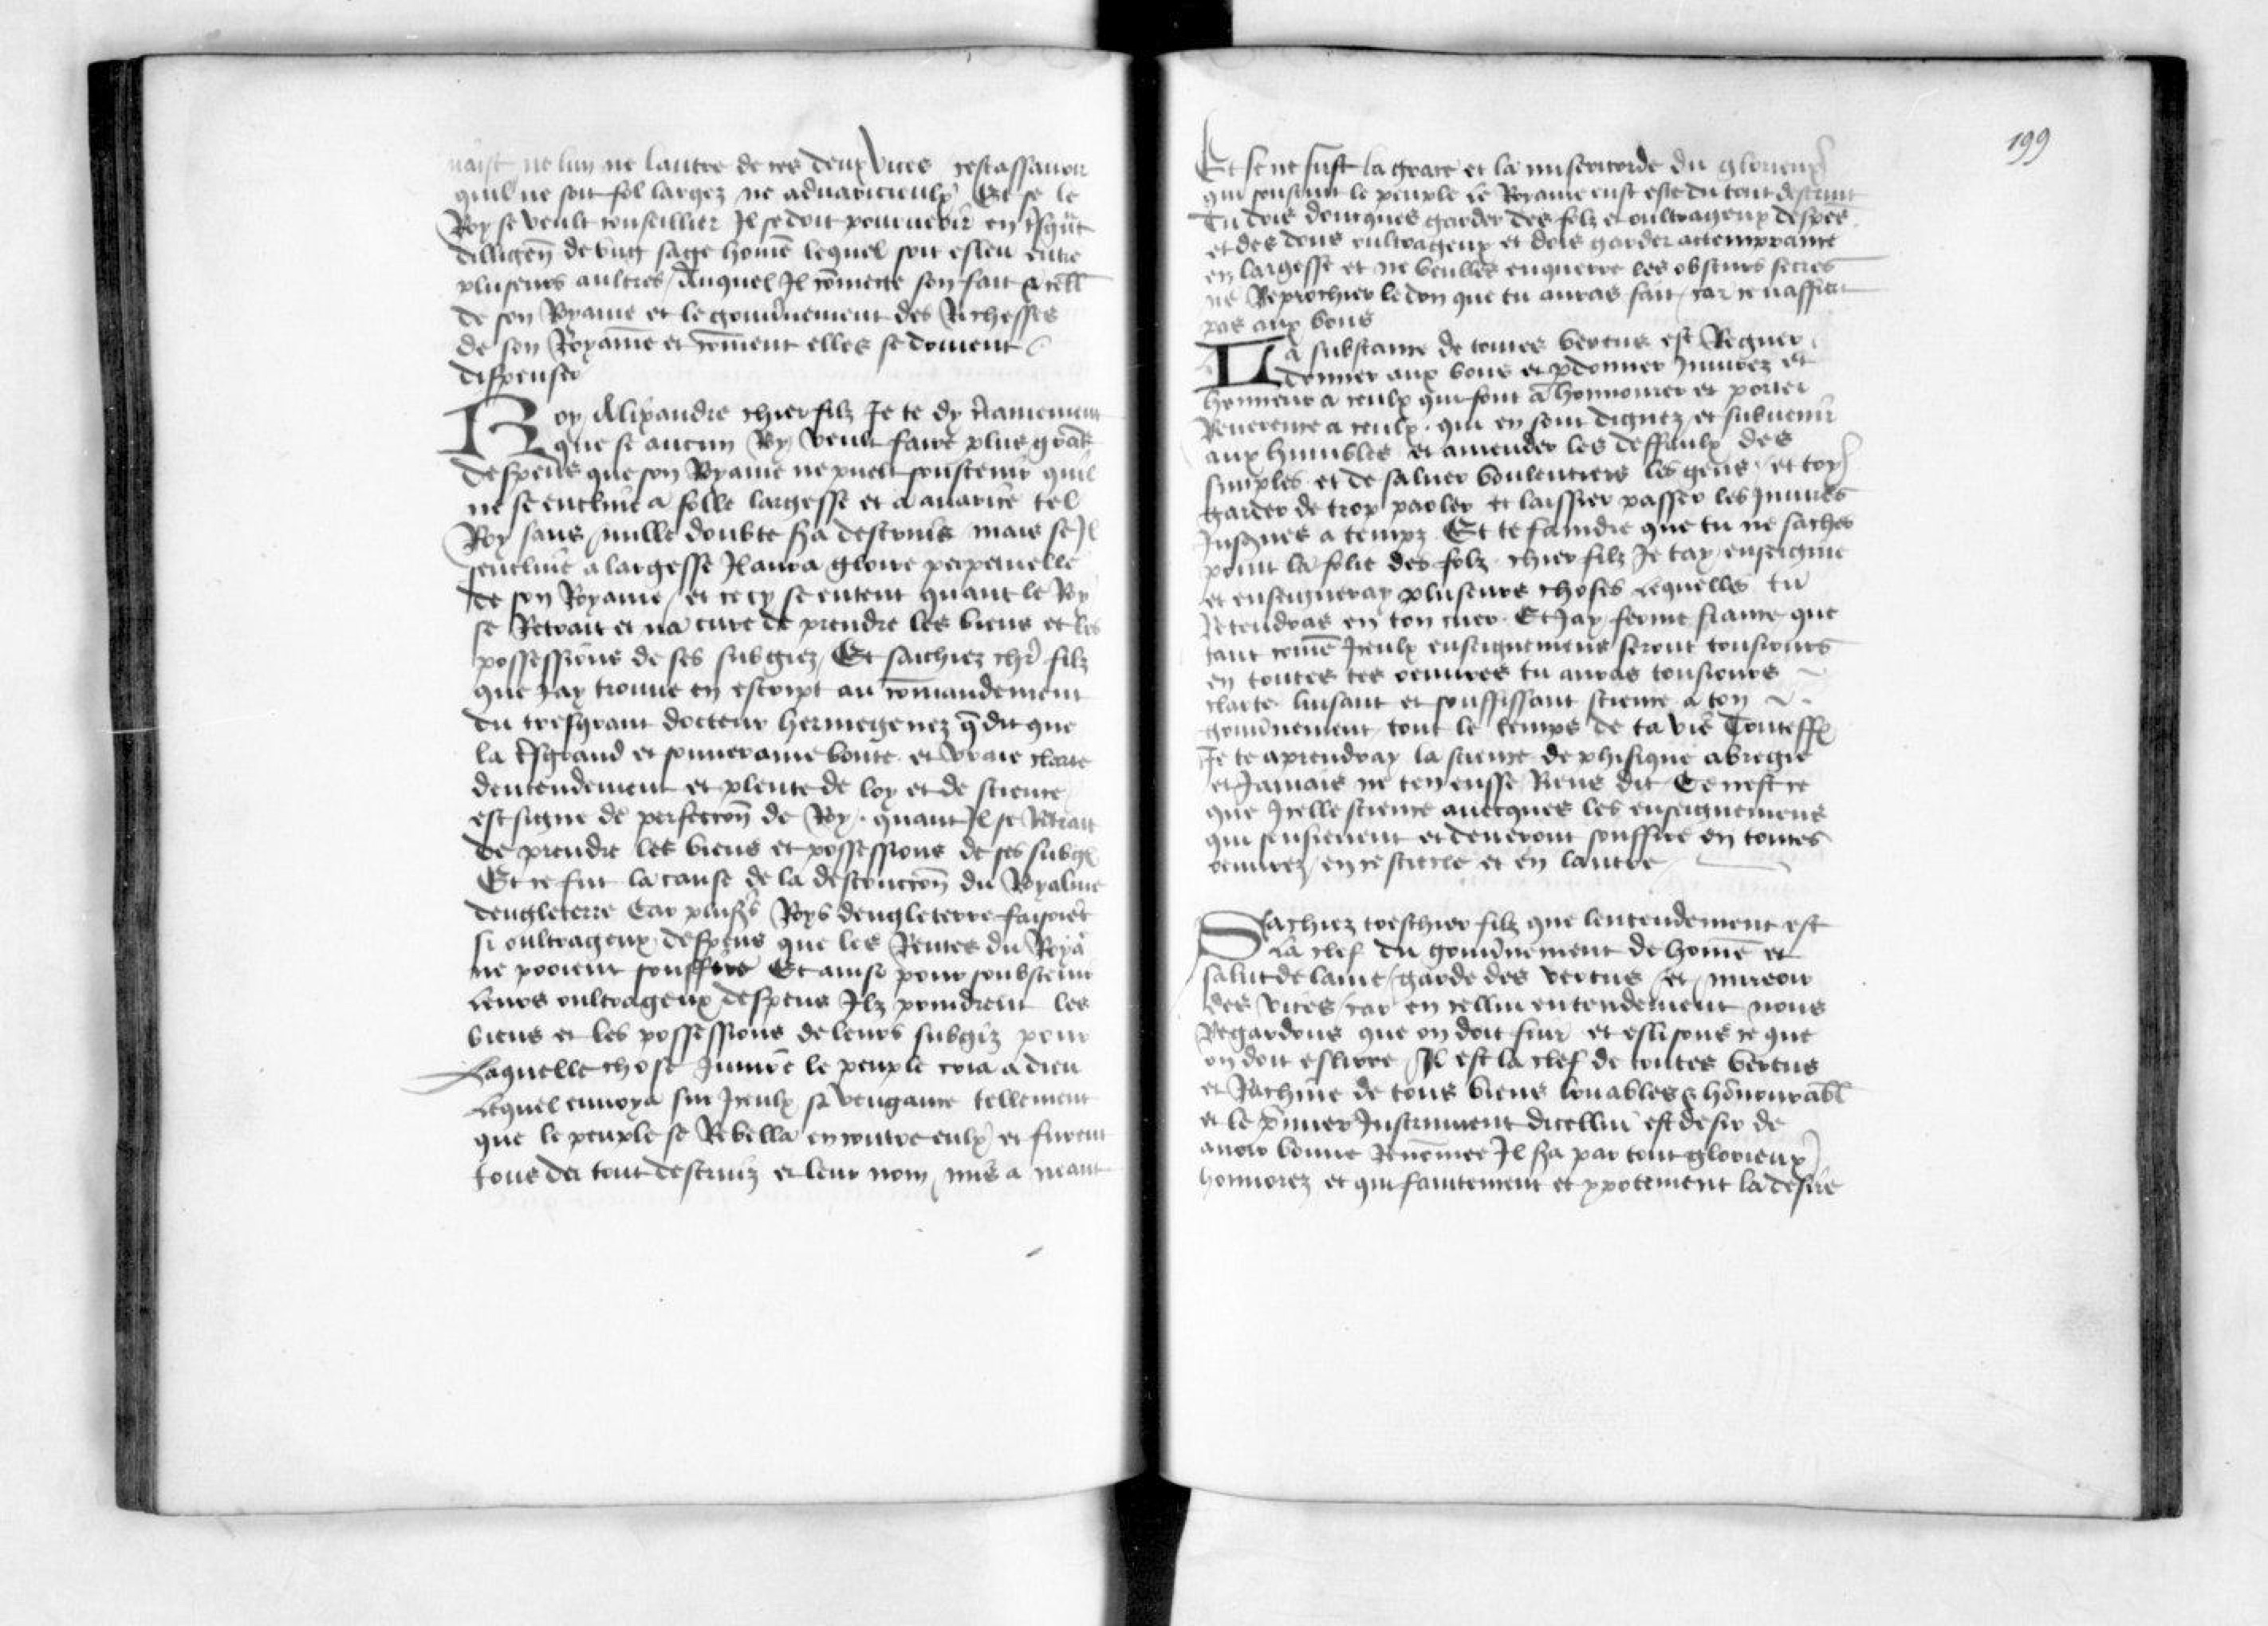 naist ne lun ne lautre de ces deux vices cestassavoir
quil ne soit fol largez ne advaricieulx Et se le
Roy se veult conseillier Il se doit pourveoir en tsgūt
diligen̄ de ung sage homē lequel soit esleu entre
pluseurs aultres / Auquel Il cōmecte son fait
de son Royame et le gouv̄nement des Richesses
de son Royamē et cōment elles se doivent
dispenser
Roy Alixandre chier filz Je te dy
que se aucun Roy veult faire plus grās
despens que son Royame ne puelt soustenir quil
ne se encline a folle largesse et a avarice tel
Roy sans nulle doubte sʳa destruis mais se Il
sencline a largesse Il aura gloire perpetuelle
de son Royame / et cecy se entent quant le Roy
se Retrait et na cure de prendre les biens et les
possessions de ses subgiez / Et sachiez chr̄ filz
que Jay trouve en escript au cōmandement
du tresgrant docteur hermegenez q̄ dit que
la tʳsgrand et souveraine bonte et vraie clarte
dentendement et plente de loy et de science
est signe de perfection̄ de Roy . quant Il se Retrait
de prendre les biens et possessions de ses subgᵉ
Et ce fut la cause de la destruction̄ du Royalme
dengleterre Car plusʳs Roys dengleterre faisoiēt
si oultrageux despens que les Rentes du Royaᵉ
ne pooient souffire Et ainsi pour soubstenir
leurs oultrageux despens Ilz prindrent les
biens et les possessions de leurs subgiz pour
Laquelle chose Injur̄e le peuple cria a dieu
Lequel envoya sur Iceulx sa vengance tellement
que le peuple se Rebella encontre eulx et furent
tous du tout destruiz et leur nom mis a neant
199
Et se ne fust la grace et la misericorde du glorieux
qui soustint le peuple le Royame eust este du tout destruit
Tu dois doncques garder des folz et oultrageux despēs
et des dons oultrageux et dois garder attemprance
en largesse et ne veulles enquerre les obscurs secres
ne Reprochier le don que tu auras fait / car ce naffiert
pas aux bons
La substance de toutes vertus est Regner
donner aux bons et ꝑdonner Injurez et
honneur a ceulx qui sont a honnourer et porter
Reverence a ceulx . qui en sont dignez et subvenir
aux humbles et amender les deffaulx des
simples et de saluer voulentiers les gens / et toy
garder de trop parler et laissier passer les Injures
Jusques a tempz Et te faindre que tu ne saches
point la folie des folz . chier filz Je tay enseigne
et enseigneray pluseurs choses Lequelles tu
Retendras en ton cuer . Et Jay ferme fiance que
tant comē Iceulx enseignemens seront tousiours
en toutes tes oeuvres tu auras tousiours
clarte luisant et souffissant science a ton
gouv̄nement tout le temps de ta vie Touteffᵉ
Je te aprendray la science de phisique abregie
et Jamais ne ten eusse Riens dit Ce nest ce
que Icelle science avecques les enseignemens
qui sensievent et devront souffire en toutes
oeuvrez / en ce siecle et en lautre
Sachiez treschier filz que lentendement est
la clef du gouv̄nement de homē et
salut de lame / garde des vertus / et mireoir
des vices / car en cellui entendement nous
Regardons que on doit fuir et eslisons ce que
on doit eslire / Il est la clef de toutes vertus
et Rachine de tous biens louables & hōnourabl̄
et le p̄mier Instrument dicellui est desir de
avoir bonne Renōmee Il sʳa par tout glorieux
honnorez et qui faintement et le desire